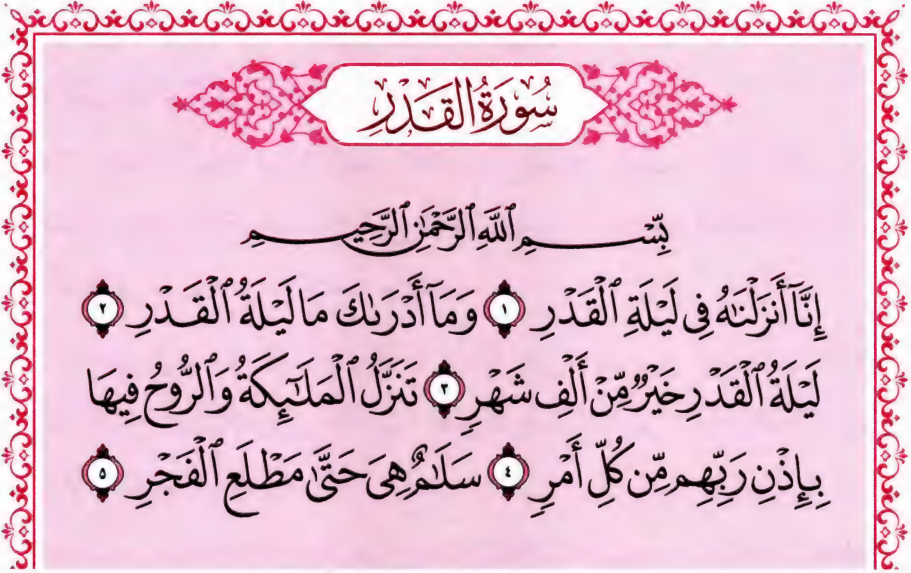 سُورَةُ القَدْرِ
بِّسْمِ ٱللَّهِ ٱلرَّحْمَٰنِ ٱلرَّحِيمِ
إِنَّآ أَنزَلْنَٰهُ فِى لَيْلَةِ ٱلْقَدْرِ ١ وَمَآ أَدْرَىٰكَ مَا لَيْلَةُ ٱلْقَدْرِ ٢
لَيْلَةُ ٱلْقَدْرِ خَيْرٌ مِّنْ أَلْفِ شَهْرٍ ٣ تَنَزَّلُ ٱلْمَلَٰٓئِكَةُ وَٱلرُّوحُ فِيهَا
بِإِذْنِ رَبِّهِم مِّن كُلِّ أَمْرٍ ٤ سَلَٰمٌ هِىَ حَتَّىٰ مَطْلَعِ ٱلْفَجْرِ ٥